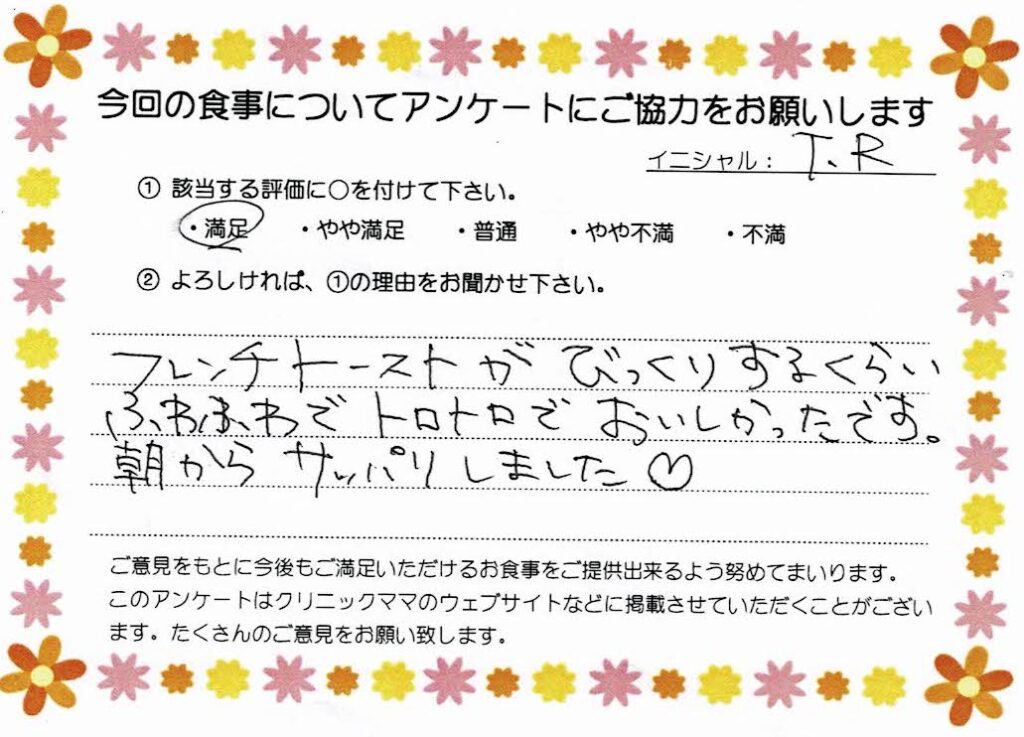 今回の食事についてアンケートにご協力をお願いします
イニシャル： T.R
① 該当する評価に○を付けて下さい。
・満足 ・やや満足 ・普通 ・やや不満 ・不満
② よろしければ、①の理由をお聞かせ下さい。
フレンチトーストが びっくりするくらい
ふわふわで トロトロで おいしかったです。
朝から サッパリ しました♡
ご意見をもとに今後もご満足いただけるお食事をご提供出来るよう努めてまいります。
このアンケートはクリニックママのウェブサイトなどに掲載させていただくことがござい
ます。たくさんのご意見をお願い致します。